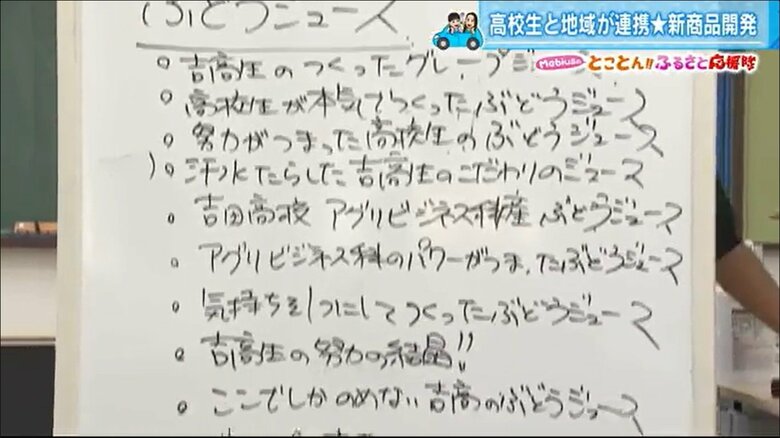 高校生と地域が連携★新商品開発
Mobius晴れ
とことん!!ふるさと応援隊
ぶどうジュース
○ 吉高生のつくったグレープジュース
○ 高校生が本気でつくったぶどうジュース
○ 努力がつまった高校生のぶどうジュース
○ 汗水たらした吉高生のこだわりのジュース
○ 吉田高校 アグリビジネス科産 ぶどうジュース
○ アグリビジネス科のパワーがつまったぶどうジュース
○ 気持ちを1つにしてつくったぶどうジュース
○ 吉高生の努力の結晶!!
○ ここでしかのめない吉高のぶどうジュース